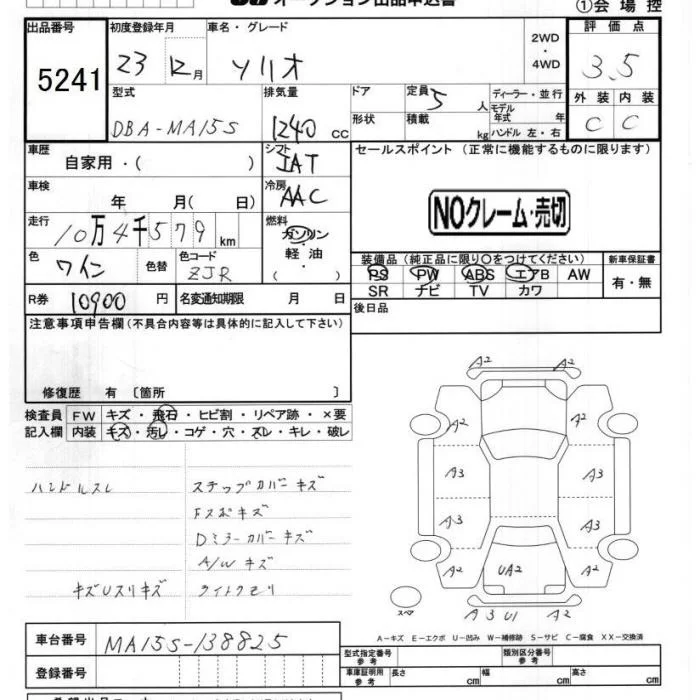 オークション出品申込書
①会場控
出品番号 5241
初度登録年月 23 12月
車名・グレード ソリオ
2WD・4WD
評価点 3.5
外装 C 内装 C
型式 DBA-MA15S
排気量 1240 cc
ドア
形状
定員 5 人
積載 kg
ディーラー・並行
モデル年式 年
ハンドル 左・右
車歴 自家用・( )
シフト IAT
セールスポイント (正常に機能するものに限ります)
NOクレーム・売切
車検 年 月( 日)
冷房 AAC
走行 10万4千579 km
燃料 ガソリン・軽油・( )
色 ワイン 色替
色コード ZJR
装備品 (純正品に限り○をつけてください)
PS PW ABS エアB AW
SR ナビ TV カワ
新車保証書 有・無
R券 10900 円
名変通知期限 月 日
後日品
注意事項申告欄 (不具合内容等は具体的に記入して下さい)
修復歴 有 〔箇所 〕
検査員記入欄
FW キズ・飛石・ヒビ割・リペア跡・×要
内装 キズ・汚レ・コゲ・穴・スレ・キレ・破レ
ハンドルスレ
ステップカバーキズ
Fスポキズ
Dミラーカバーキズ
A/Wキズ
キズUスリキズ
ライトクモリ
A2 A2
A2 A2
A3 A3
A3 A3
A2 UA2 A2
スペア
A3 U1 A2
A-キズ E-エクボ U-凹み W-補修跡 S-サビ C-腐食 XX-交換済
車台番号 MA15S-138825
登録番号
型式指定番号 参考
類別区分番号 参考
車庫証明用 参考 長さ cm 幅 cm 高さ cm